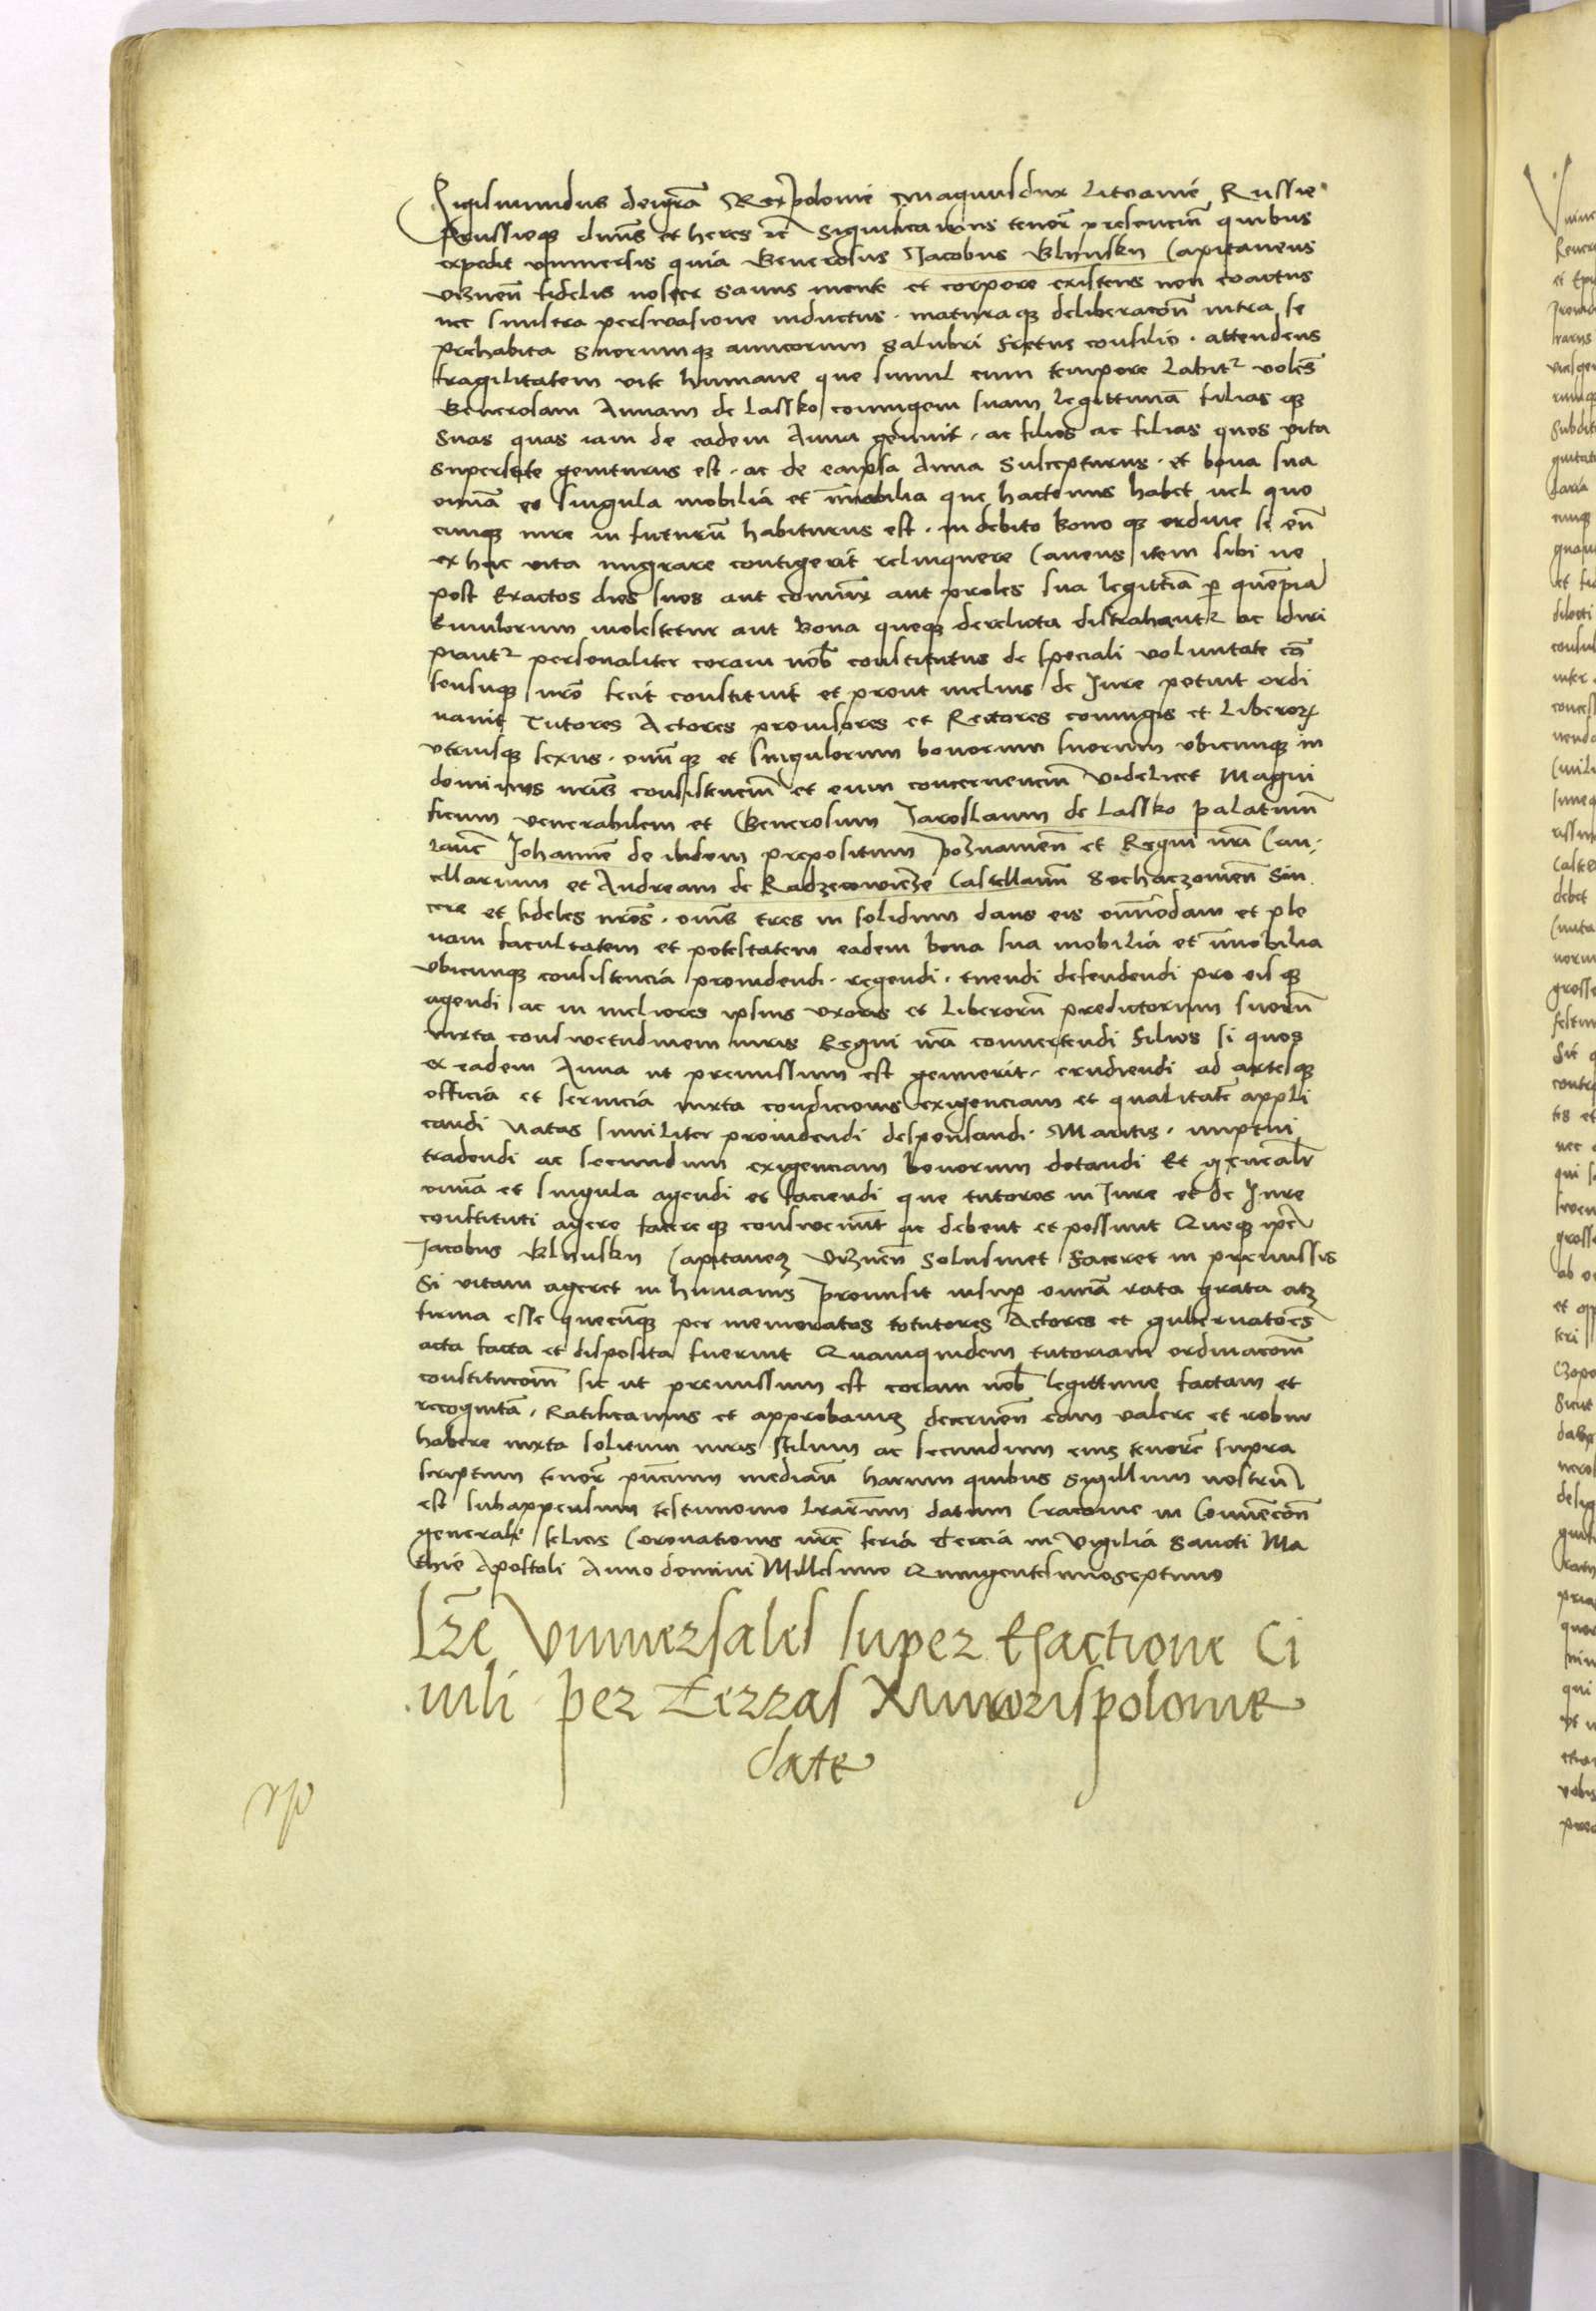 Sigismundus dei grã Rex polonie Magnusdux Litvanie Russie
Prussieqꝫ dnũs et heres ic̃ Significamus tenor̃ presencin̄ quibus
expedit vniuersis quia Generosus Jacobus Glinskn Capitaneus
Viznen̄ fidelis noster Sanus mente et corpore existens non coactus
nec sinistra persuasione inductus · maturaqꝫ deliberacõn̄ intra se
prehabita Suorumqꝫ amicorum Salubri Fretus consilio · attendens
fragilitatem vite humane que simul cum tempore Labit᷑ volẽs
Generosam Annam de Lassko coniugem suam legittimã filias qꝫ
Suas quas iam de eadem Anna genuit · ac filios ac filias quos vita
superstite geniturus est · ac de eaipsa Anna Suscepturus · et bona sua
omĩa et singula mobilia et im̃obilia que hactenus habet uel quo
cunqꝫ iure in futurũ habiturus est · in debito bono qꝫ ordine se eñ
ex hac vita migrare contigerit relinquere Cauens item sibi ne
post Exactos dies suos aut coniunx aut proles sua legittĩa ꝑ quẽpiã
Emulorum molestetur aut bona queqꝫ derelicta distrahant᷑ ac diri
piant᷑ personaliter coram nob̃ constitutus de speciali voluntate cõ
sensuqꝫ nr̃o fecit constituit et prout melius de Jure potuit ordi
nauit Tutores Actores prouisores et Rectores coniugis et Liberoꝝ
vtriusqꝫ sexus · omñ qꝫ et singulorum bonorum suorum vbicunqꝫ in
dominijs nr̃is consistencin̄ et eum concernencin̄ videlicet Magni
ficum venerabilem et Generosum Jaroslaum de Lassko palatinũ
Lanc̃ Johannẽ de ibidem prepositum Poznanien̄ et Regni nr̃i Can
cellarium et Andream de Radzeiowicze Castellanũ Sochaczouien̄ Sin
cere et fideles nr̃os · omñs tres in solidum dans eis omñodam et ple
nam facultatem et potestatem eadem bona sua mobilia et im̃obilia
vbicunqꝫ consistencia prouidendi · regendi · tuendi defendendi pro eisqꝫ
agendi ac in meliores ipsius vxoris et Liberorũ predictorum suorũ
iuxta consuetudinem iuris Regni nr̃i conuertendi Filios si quos
ex eadem Anna ut premissum est genuerit · erudiendi ad artesqꝫ
officia et seruicia iuxta condicionis exigenciam et qualitatẽ appli
candi Natas similiter prouidendi desponsandi · Maritis · nuptui
tradendi ac secundum exigenciam bonorum dotandi Et gẽneralr̃
omĩa et singula agendi et faciendi que tutores in Jure et de Jure
constituti agere facereqꝫ consueuerunt ac debent et possunt Queqꝫ ipẽ
Jacobus Glinskn Capitaneꝫ Viznen̄ Solusmet Faceret in premissis
Si vitam ageret in humanis Promisit insuꝑ omĩa rata grata atqꝫ
firma esse quecũqꝫ per memoratos totutores Actores et gubernatoẽs
acta facta et disposita fuerint Quamquidem tutoriam ordinacõm̄
constitucõm̄ sic ut premissum est coram nob̃ legittime factam et
recognitã · Ratificamus et approbamꝫ decernen̄ eam valere et robur
habere iuxta solitum iuris stilum ac secundum eius tenorẽ supra
scriptum tenor̃ pñcium median̄ harum quibus Sigillum nostrũ
est subappensum testimonio lr̃arum datum Cracouie in Conuẽcõn̄
generali felicis Coronationis nr̃e feria Tercia in Vigilia Sancti Ma
thie Apostoli Anno domini Millesimo Quingentesimoseptimo
Lr̃e Vniuersales super Exactione Ci
uili per Terras Minorispolonie
date